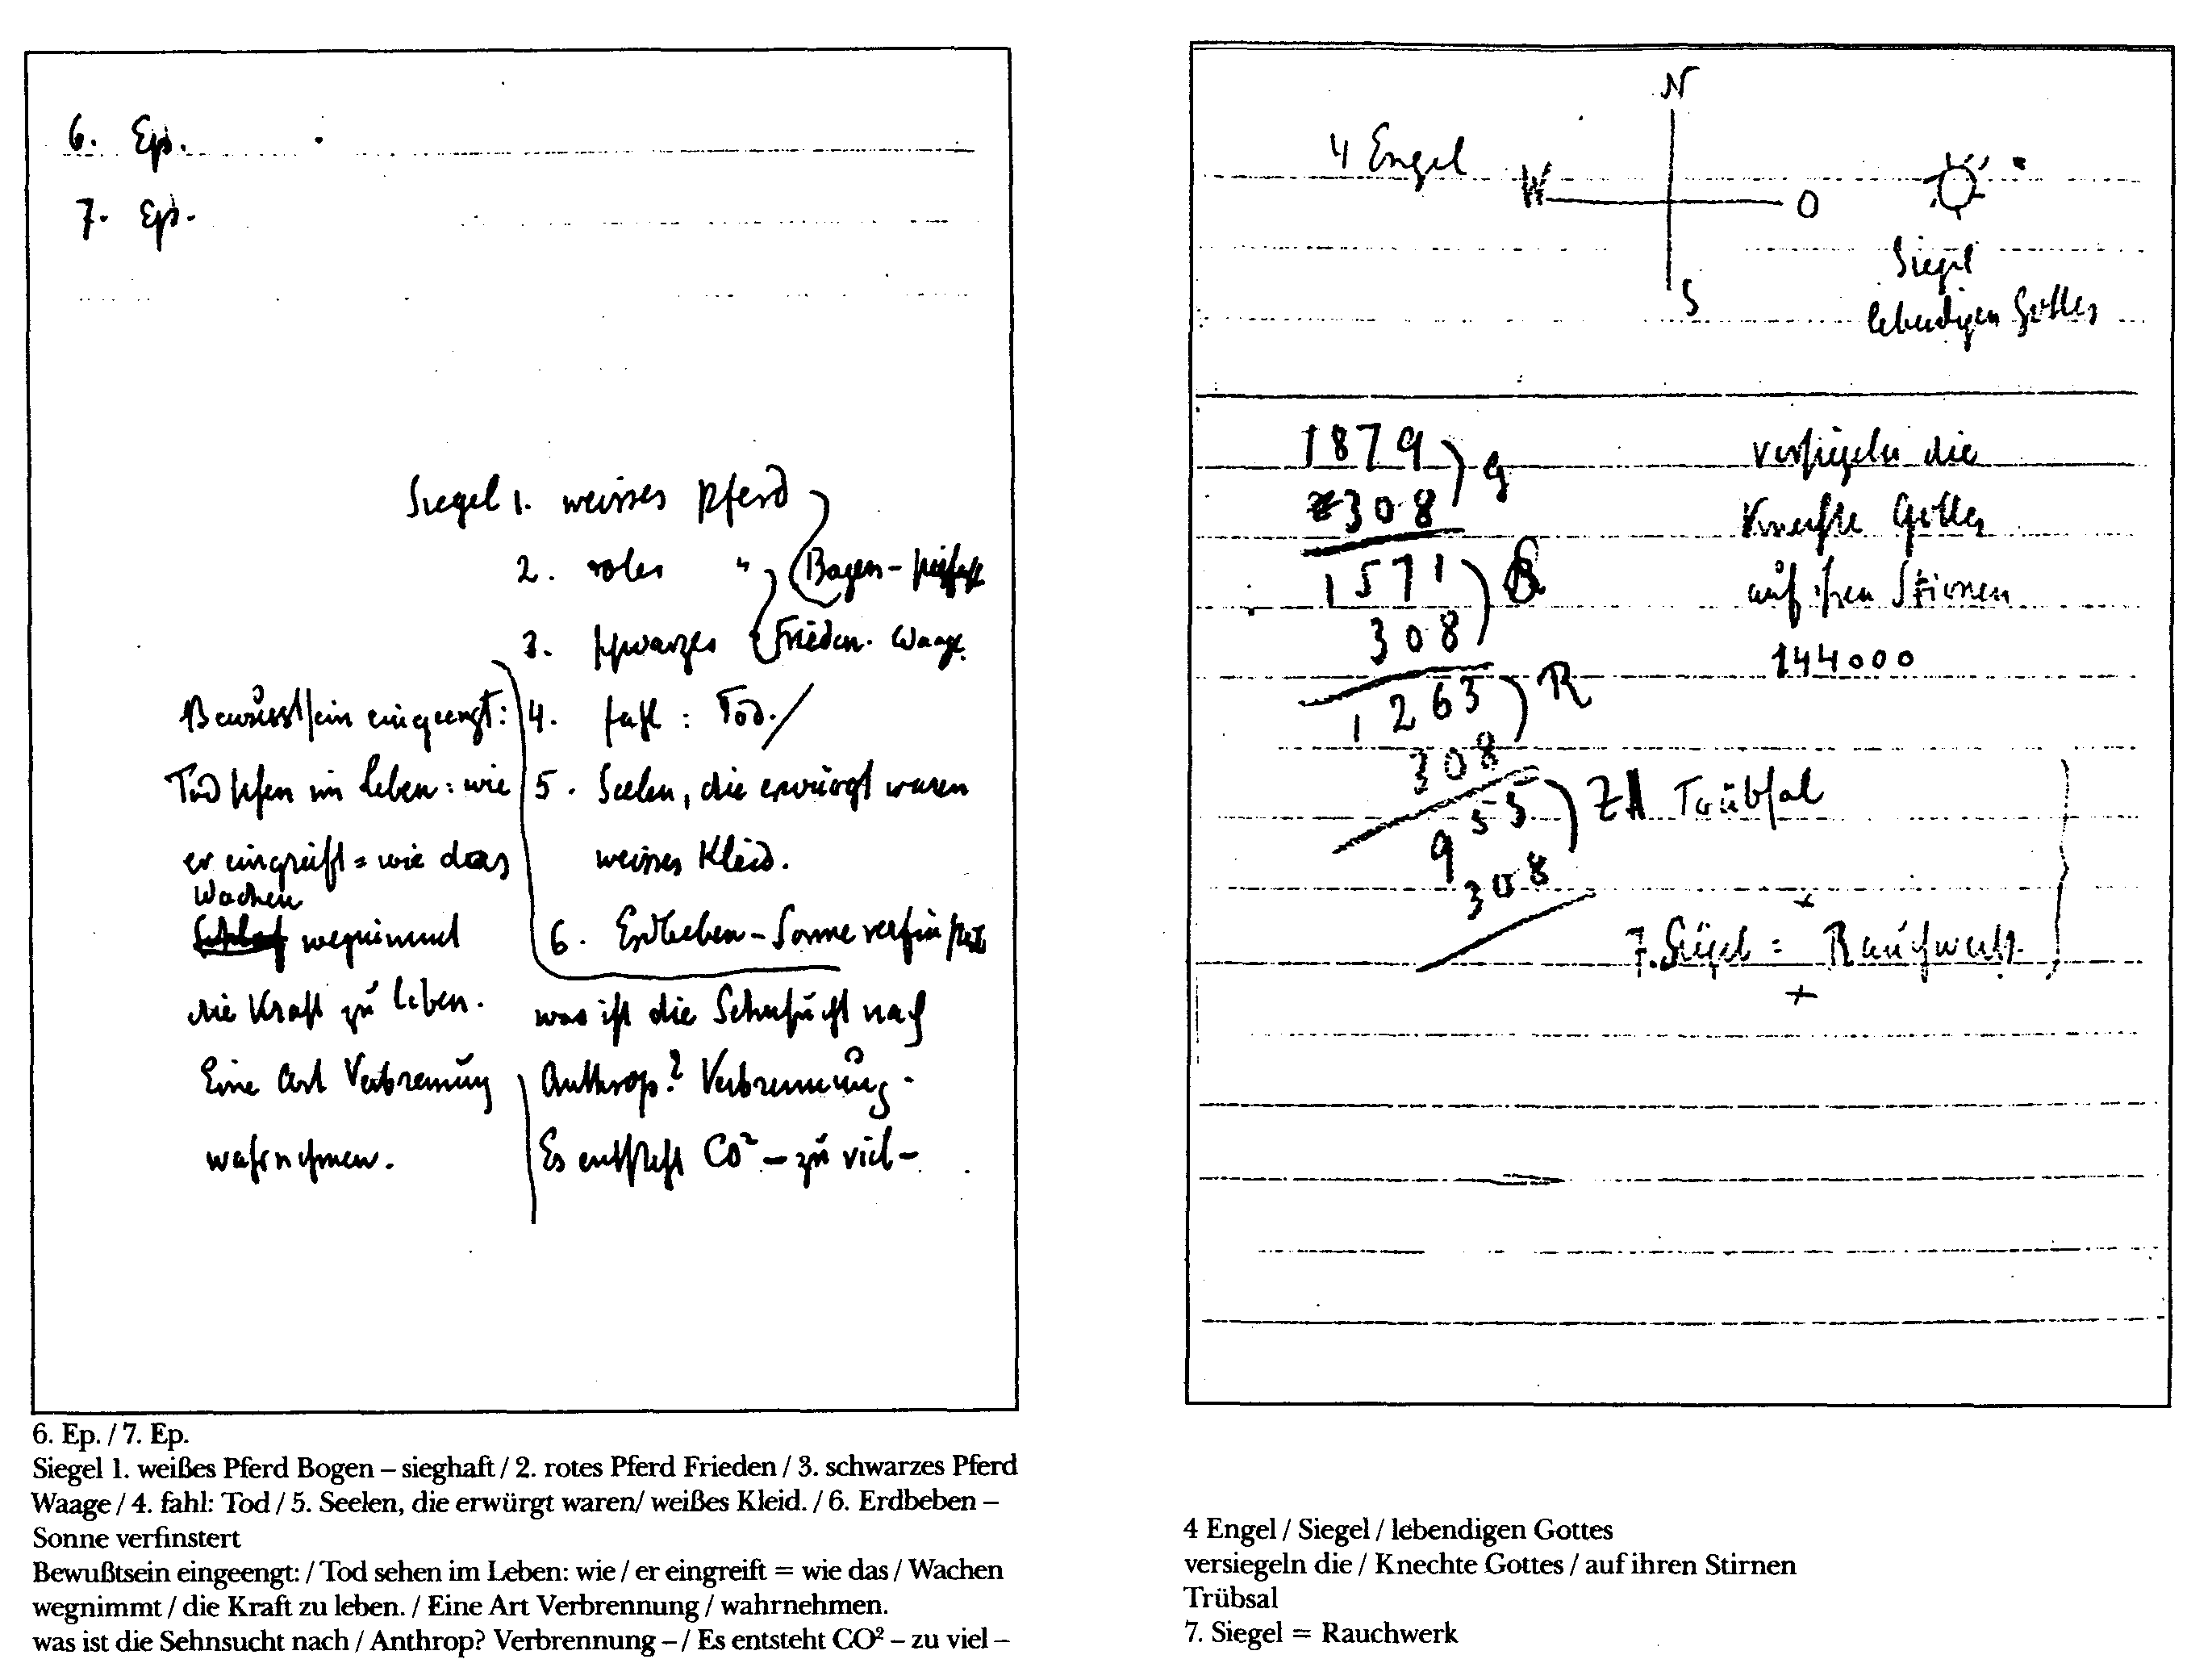 6. Ep.
7. Ep.
Siegel 1. weisses Pferd
2. rotes " Bogen – sieghaft
3. schwarzes Frieden. Waage
Bewusstsein eingeengt: 4. fahl: Tod. /
Tod sehen im Leben: wie 5. Seelen, die erwürgt waren
er eingreift = wie das weisses Kleid.
Wachen
wegnimmt 6. Erdbeben – Sonne verfinstert
die Kraft zu leben. was ist die Sehnsucht nach
Eine Art Verbrennung Anthrop? Verbrennung –
wahrnehmen. Es entsteht CO² – zu viel –
6. Ep. / 7. Ep.
Siegel 1. weißes Pferd Bogen – sieghaft / 2. rotes Pferd Frieden / 3. schwarzes Pferd
Waage / 4. fahl: Tod / 5. Seelen, die erwürgt waren/ weißes Kleid. / 6. Erdbeben –
Sonne verfinstert
Bewußtsein eingeengt: / Tod sehen im Leben: wie / er eingreift = wie das / Wachen
wegnimmt / die Kraft zu leben. / Eine Art Verbrennung / wahrnehmen.
was ist die Sehnsucht nach / Anthrop? Verbrennung – / Es entsteht CO² – zu viel –
N
4 Engel W O
S
Siegel
lebendigen Gottes
1879 G
308
1571
308
1263 R
308
955 ZA Trübsal
308
versiegeln die
Knechte Gottes
auf ihren Stirnen
144000
7. Siegel = Rauchwerk.
4 Engel / Siegel / lebendigen Gottes
versiegeln die / Knechte Gottes / auf ihren Stirnen
Trübsal
7. Siegel = Rauchwerk